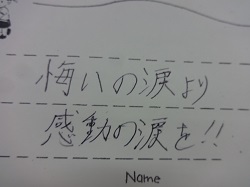 悔いの涙より
感動の涙を!!
Name